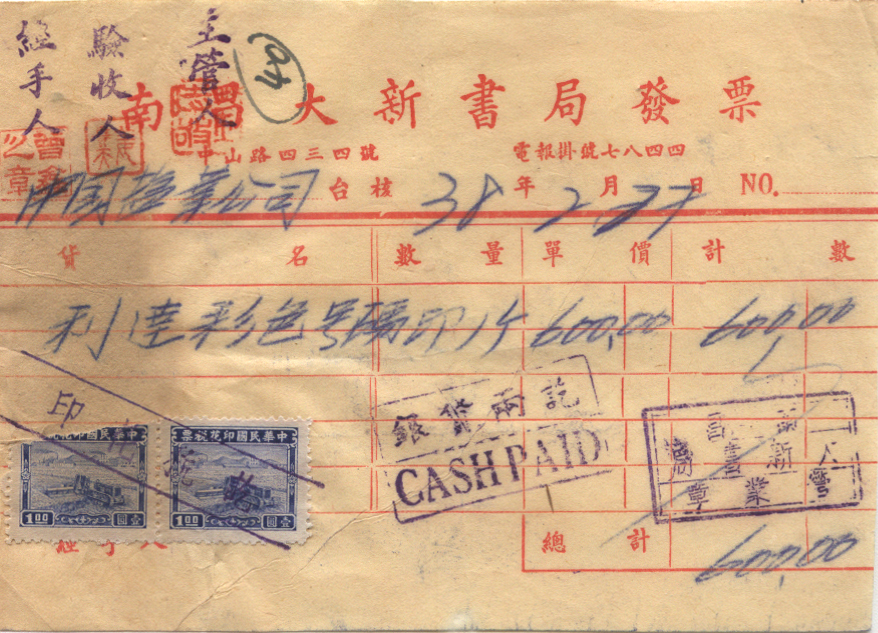 主管人
驗收人
經手人
南昌大新書局發票
中山路四三四號 電報掛號七八四四
中国塩業公司 台核 38年2月27日 NO.
貨名 數量 單價 計數
利達彩色号碼印 1个 600.00 600.00
銀貨兩訖
CASH PAID
印花
中華民國印花稅票
1.00 壹圓
中華民國印花稅票
1.00 壹圓
經手人
總計 600.00